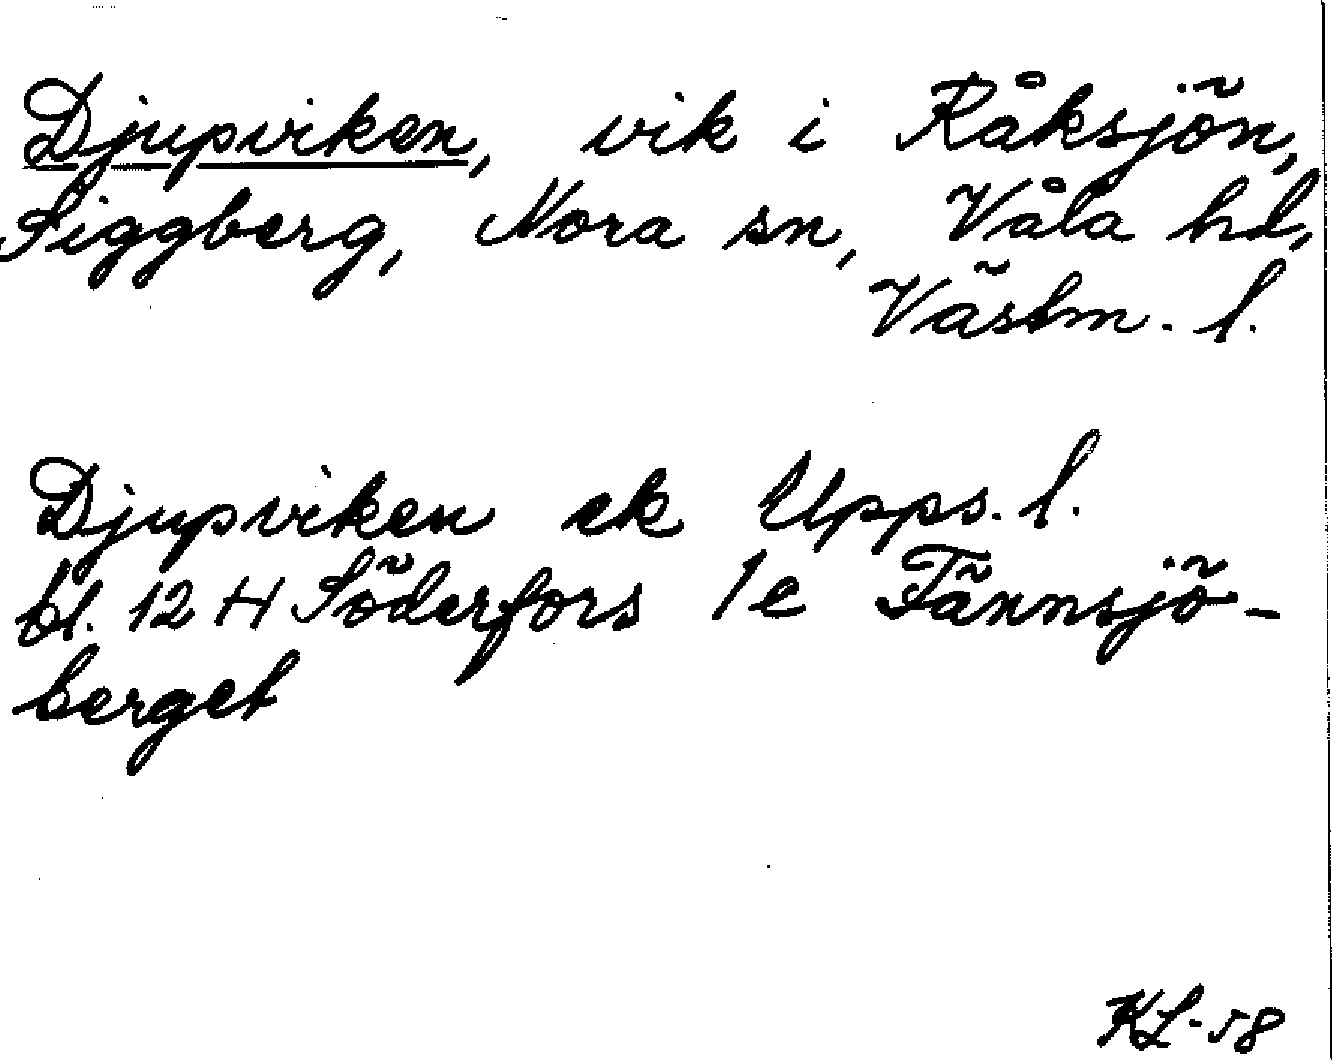 Djupviken, vik i Råksjön,
Siggberg, Nora sn, Våla hd,
Västm. l.
Djupviken ek Upps. l.
bl. 12 H Söderfors 1e Tännsjö-
berget
KL-58